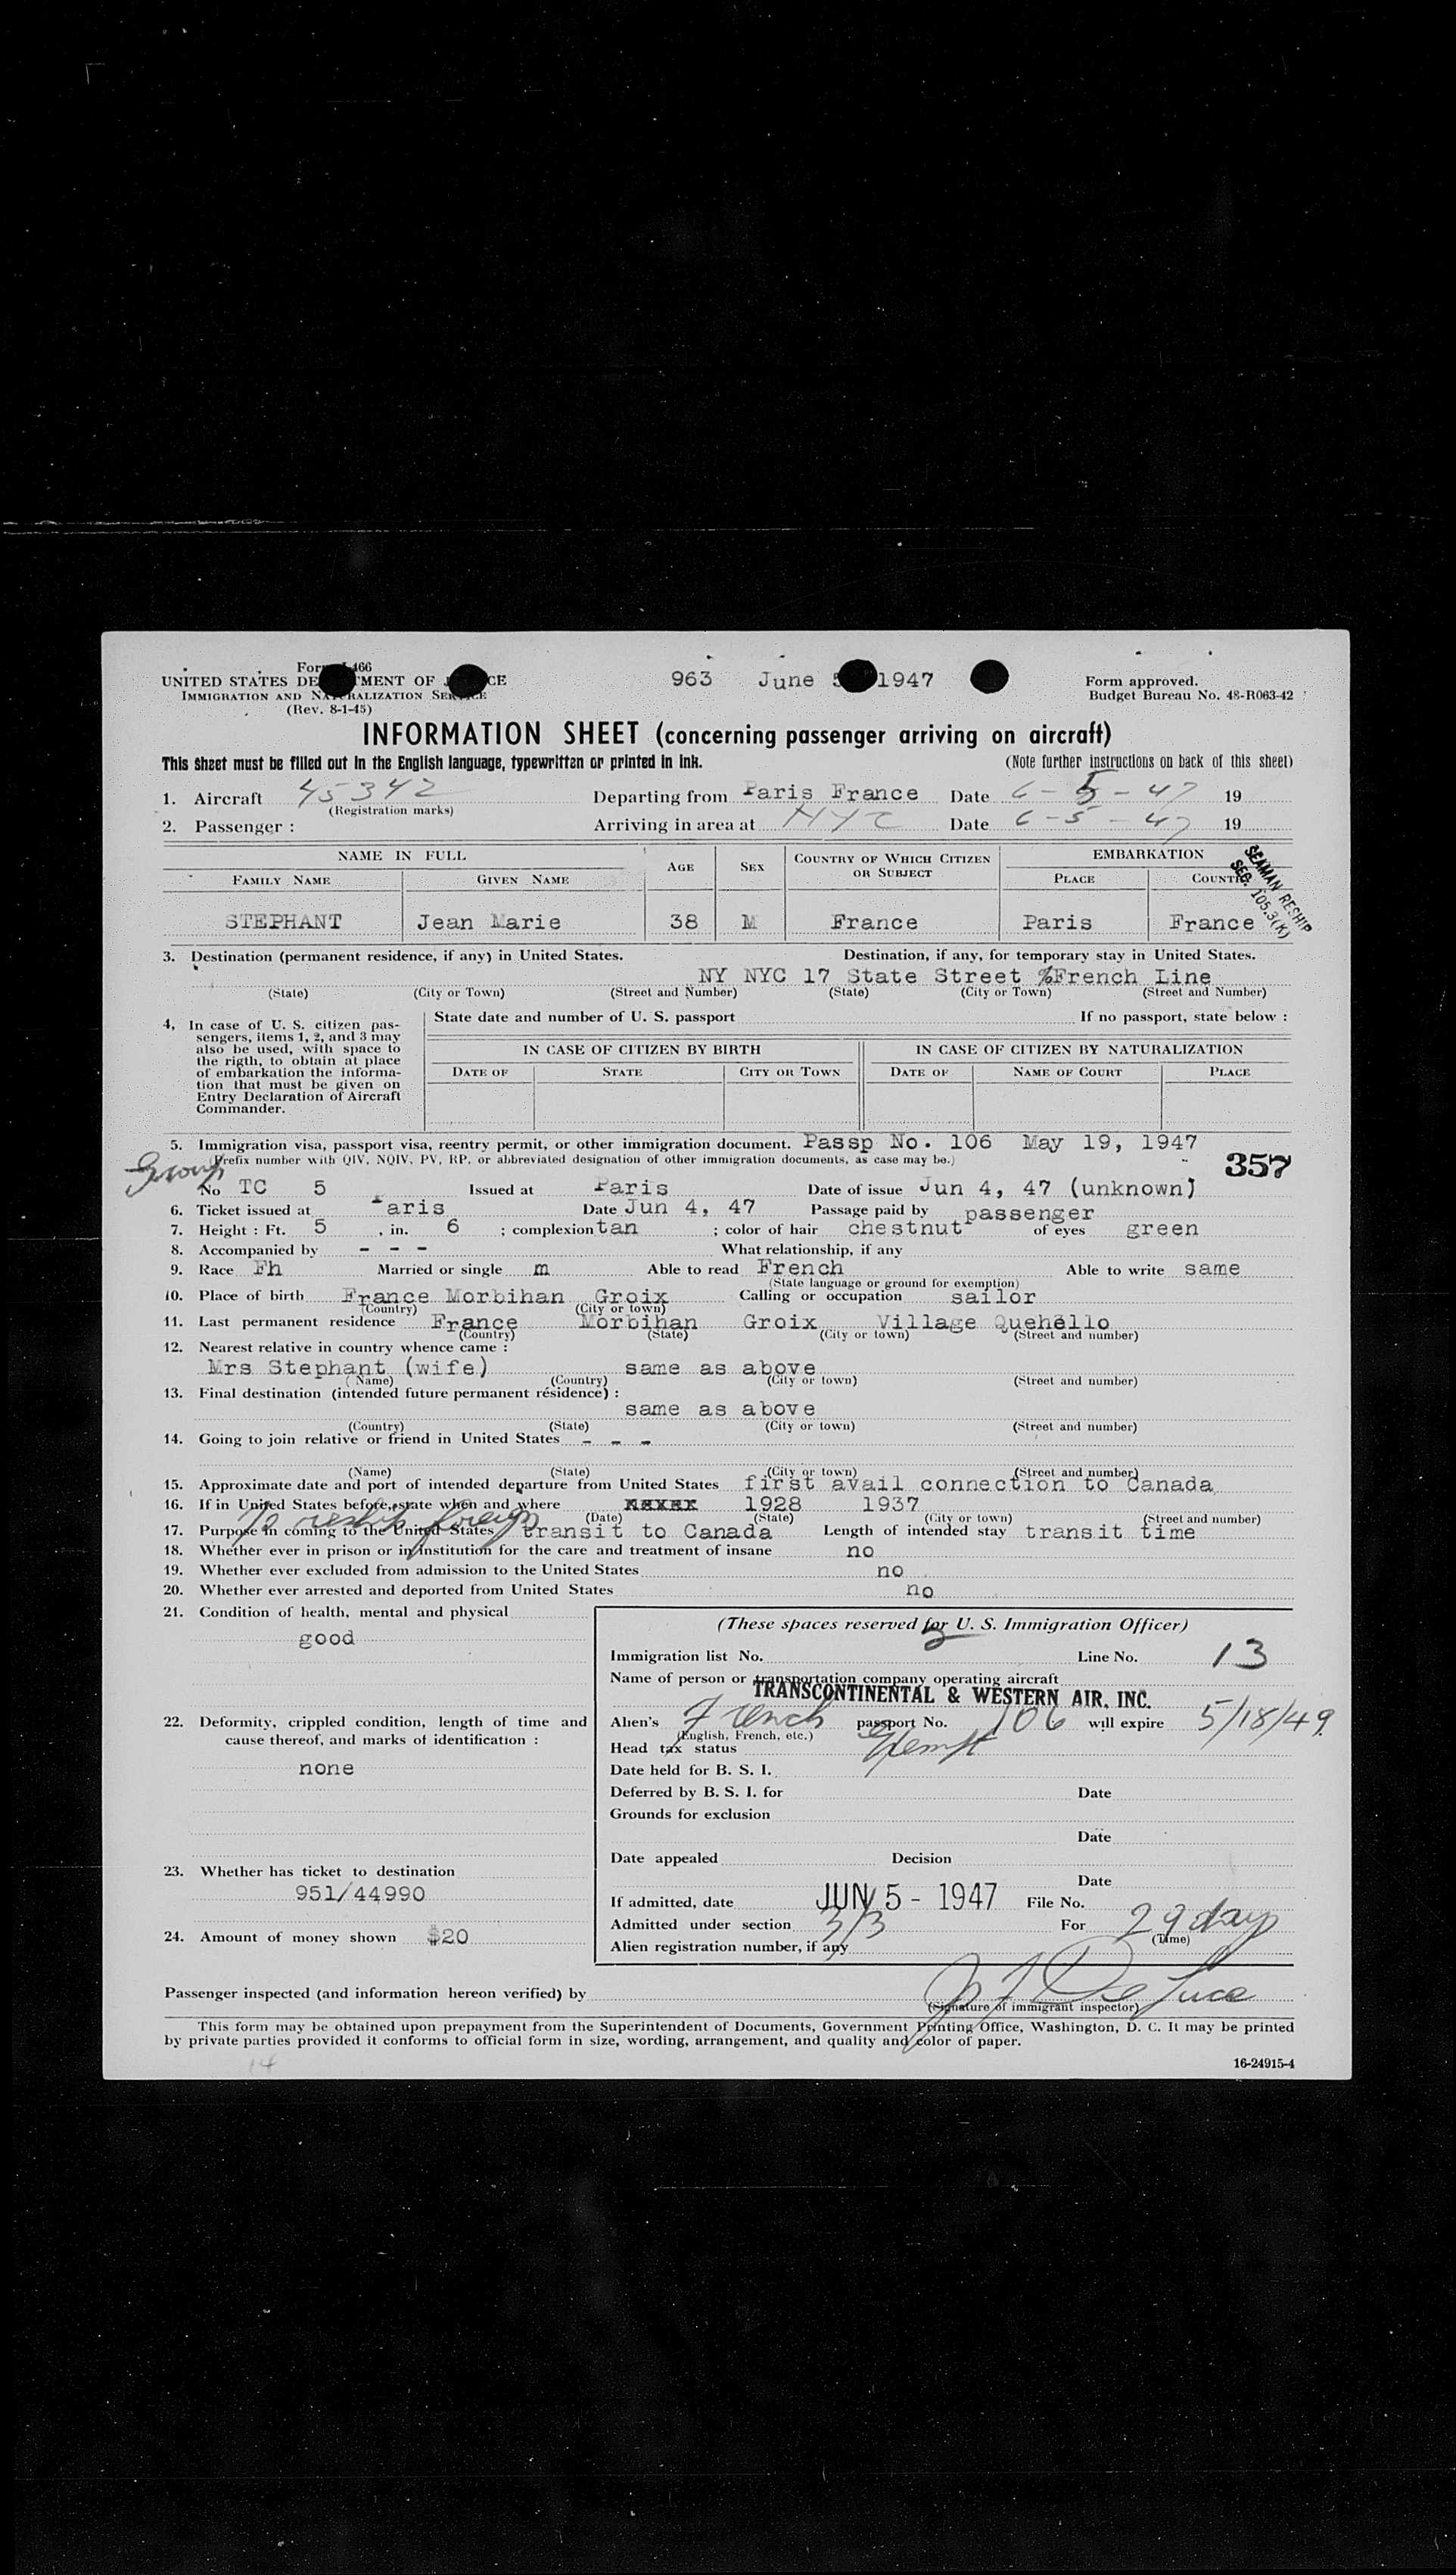 Form I-466
UNITED STATES DEPARTMENT OF JUSTICE
IMMIGRATION AND NATURALIZATION SERVICE
(Rev. 8-1-45)
963 June 5 1947
Form approved.
Budget Bureau No. 48-R063-42
INFORMATION SHEET (concerning passenger arriving on aircraft)
This sheet must be filled out in the English language, typewritten or printed in ink. (Note further instructions on back of this sheet)
1. Aircraft 45342 Departing from Paris France Date 6-5-47 19
(Registration marks)
2. Passenger : Arriving in area at NYC Date 6-5-47 19
NAME IN FULL AGE SEX COUNTRY OF WHICH CITIZEN OR SUBJECT EMBARKATION
FAMILY NAME GIVEN NAME PLACE COUNTRY
SEAMAN RESHIP
SEC. 105.3(K)
STEPHANT Jean Marie 38 M France Paris France
3. Destination (permanent residence, if any) in United States. Destination, if any, for temporary stay in United States.
NY NYC 17 State Street %French Line
(State) (City or Town) (Street and Number) (State) (City or Town) (Street and Number)
4. In case of U. S. citizen pas-
sengers, items 1, 2, and 3 may
also be used, with space to
the rigth, to obtain at place
of embarkation the informa-
tion that must be given on
Entry Declaration of Aircraft
Commander.
State date and number of U. S. passport If no passport, state below :
IN CASE OF CITIZEN BY BIRTH IN CASE OF CITIZEN BY NATURALIZATION
DATE OF STATE CITY OR TOWN DATE OF NAME OF COURT PLACE
5. Immigration visa, passport visa, reentry permit, or other immigration document. Passp No. 106 May 19, 1947
(Prefix number with QIV, NQIV, PV, RP, or abbreviated designation of other immigration documents, as case may be.)
357
Group
No TC 5 Issued at Paris Date of issue Jun 4, 47 (unknown)
6. Ticket issued at Paris Date Jun 4, 47 Passage paid by passenger
7. Height : Ft. 5 , in. 6 ; complexion tan ; color of hair chestnut of eyes green
8. Accompanied by - - - What relationship, if any
9. Race Fh Married or single m Able to read French Able to write same
(State language or ground for exemption)
10. Place of birth France Morbihan Groix Calling or occupation sailor
(Country) (City or town)
11. Last permanent residence France Morbihan Groix Village Quehello
(Country) (State) (City or town) (Street and number)
12. Nearest relative in country whence came :
Mrs Stephant (wife) same as above
(Name) (Country) (City or town) (Street and number)
13. Final destination (intended future permanent résidence) :
same as above
(Country) (State) (City or town) (Street and number)
14. Going to join relative or friend in United States - - -
(Name) (State) (City or town) (Street and number)
15. Approximate date and port of intended departure from United States first avail connection to Canada
16. If in United States before, state when and where 1928 1937
(Date) (State) (City or town) (Street and number)
To reship foreign
17. Purpose in coming to the United States transit to Canada Length of intended stay transit time
18. Whether ever in prison or in institution for the care and treatment of insane no
19. Whether ever excluded from admission to the United States no
20. Whether ever arrested and deported from United States no
21. Condition of health, mental and physical
good
22. Deformity, crippled condition, length of time and
cause thereof, and marks of identification :
none
23. Whether has ticket to destination
951/44990
24. Amount of money shown $20
(These spaces reserved for U. S. Immigration Officer)
Immigration list No. 2 Line No. 13
Name of person or transportation company operating aircraft
TRANSCONTINENTAL & WESTERN AIR, INC.
Alien's French passport No. 106 will expire 5/18/49
(English, French, etc.)
Head tax status Exempt
Date held for B. S. I.
Deferred by B. S. I. for Date
Grounds for exclusion
Date
Date appealed Decision
Date
If admitted, date JUN 5 - 1947 File No.
Admitted under section 3/3 For 29 days
(Time)
Alien registration number, if any
Passenger inspected (and information hereon verified) by De Luca
(Signature of immigrant inspector)
This form may be obtained upon prepayment from the Superintendent of Documents, Government Printing Office, Washington, D. C. It may be printed
by private parties provided it conforms to official form in size, wording, arrangement, and quality and color of paper.
14
16-24915-4